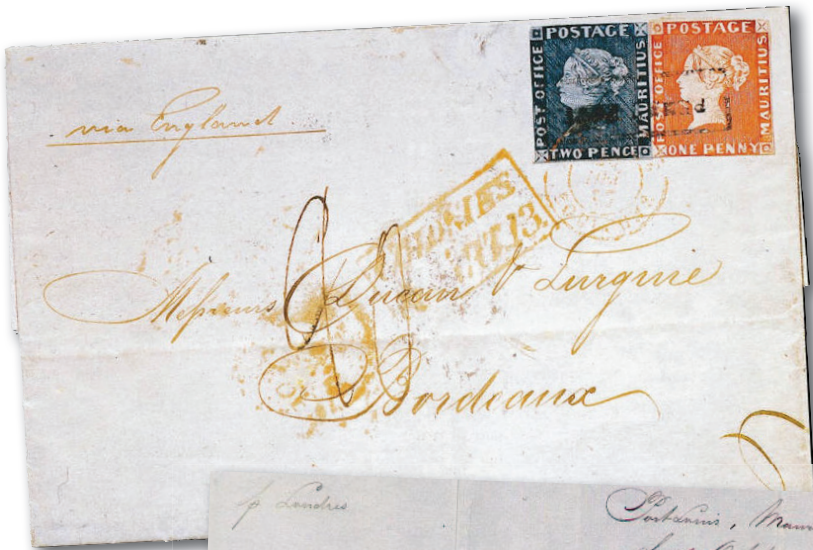 POSTAGE
POST OFFICE
MAURITIUS
TWO PENCE
POSTAGE
POST OFFICE
MAURITIUS
ONE PENNY
PENNY
via England
COLONIES
ART.13.
Messieurs Ducan & Lurguie
Bordeaux
p Londres
Port Louis,